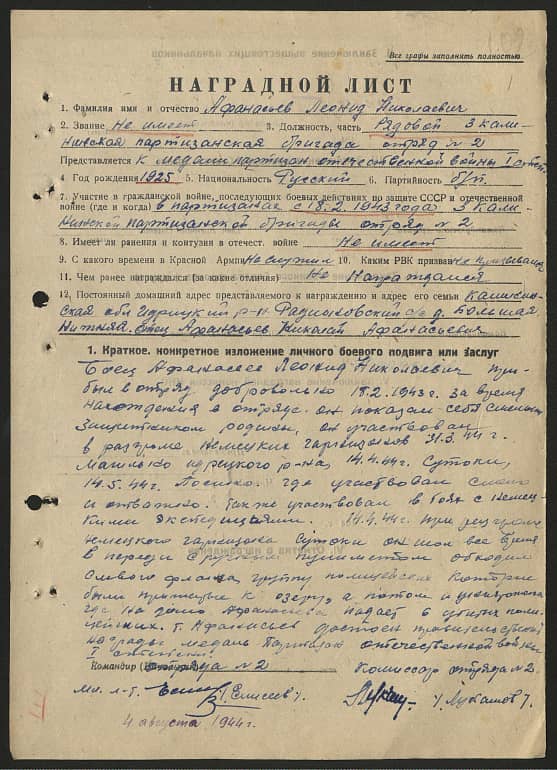 Все графы заполнять полностью
НАГРАДНОЙ ЛИСТ
1. Фамилия имя и отчество Афанасьев Леонид Николаевич
2. Звание Не имеет 3. Должность, часть Рядовой 3 кали-
нинская партизанская бригада отряд №2
Представляется к медали партизан отечественной войны I степ.
4. Год рождения 1925 5. Национальность Русский 6. Партийность б/п.
7. Участие в гражданской войне, последующих боевых действиях по защите СССР и отечественной
войне (где и когда) в партизанах с 18.2.1943 года 3 Кали-
нинской партизанской бригады отряд №2
8. Имеет ли ранения и контузии в отечест. войне Не имеет
9. С какого времени в Красной Армии Не служил 10. Каким РВК призван не призывался
11. Чем ранее награждался (за какие отличия) Не награждался
12. Постоянный домашний адрес представляемого к награждению и адрес его семьи Калинин-
ская обл Идрицкий р-н с/с д. Большая
Нижняя. Отец Афанасьев Николай Афанасьевич
1. Краткое, конкретное изложение личного боевого подвига или заслуг
Боец Афанасьев Леонид Николаевич при-
был в отряд добровольно 18.2.1943г. За время
нахождения в отряде он показал себя смелым
защитником родины, он участвовал
в разгроме немецких гарнизонов 31.3.44г.
р-на, 14.4.44г. Сутоки,
14.5.44г. где участвовал смело
и отважно. Также участвовал в боях с немец-
кими экспедициями. 14.4.44г. при разгроме
немецкого гарнизона Сутоки он шел все время
в переди с ручным пулеметом обходил
с левого фланга, группу полицейских которые
были прижаты к озеру, а потом и уничтожены
где на долю Афанасьева падает 6 убитых поли-
цейских. т. Афанасьев достоин правительственной
награды медаль Партизан отечественной войны
I степени.
Командир отряда №2 Комиссар отряда №2
мл. л-т. /Елисеев/. /Лукашов/.
4 августа 1944г.